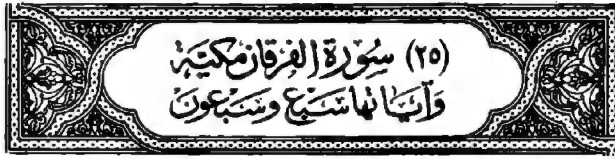 (٢٥) سُورَةُ الفُرقَانِ مَكيَّة
وَآيَاتهَا سَبْعٌ وَسَبْعُونَ